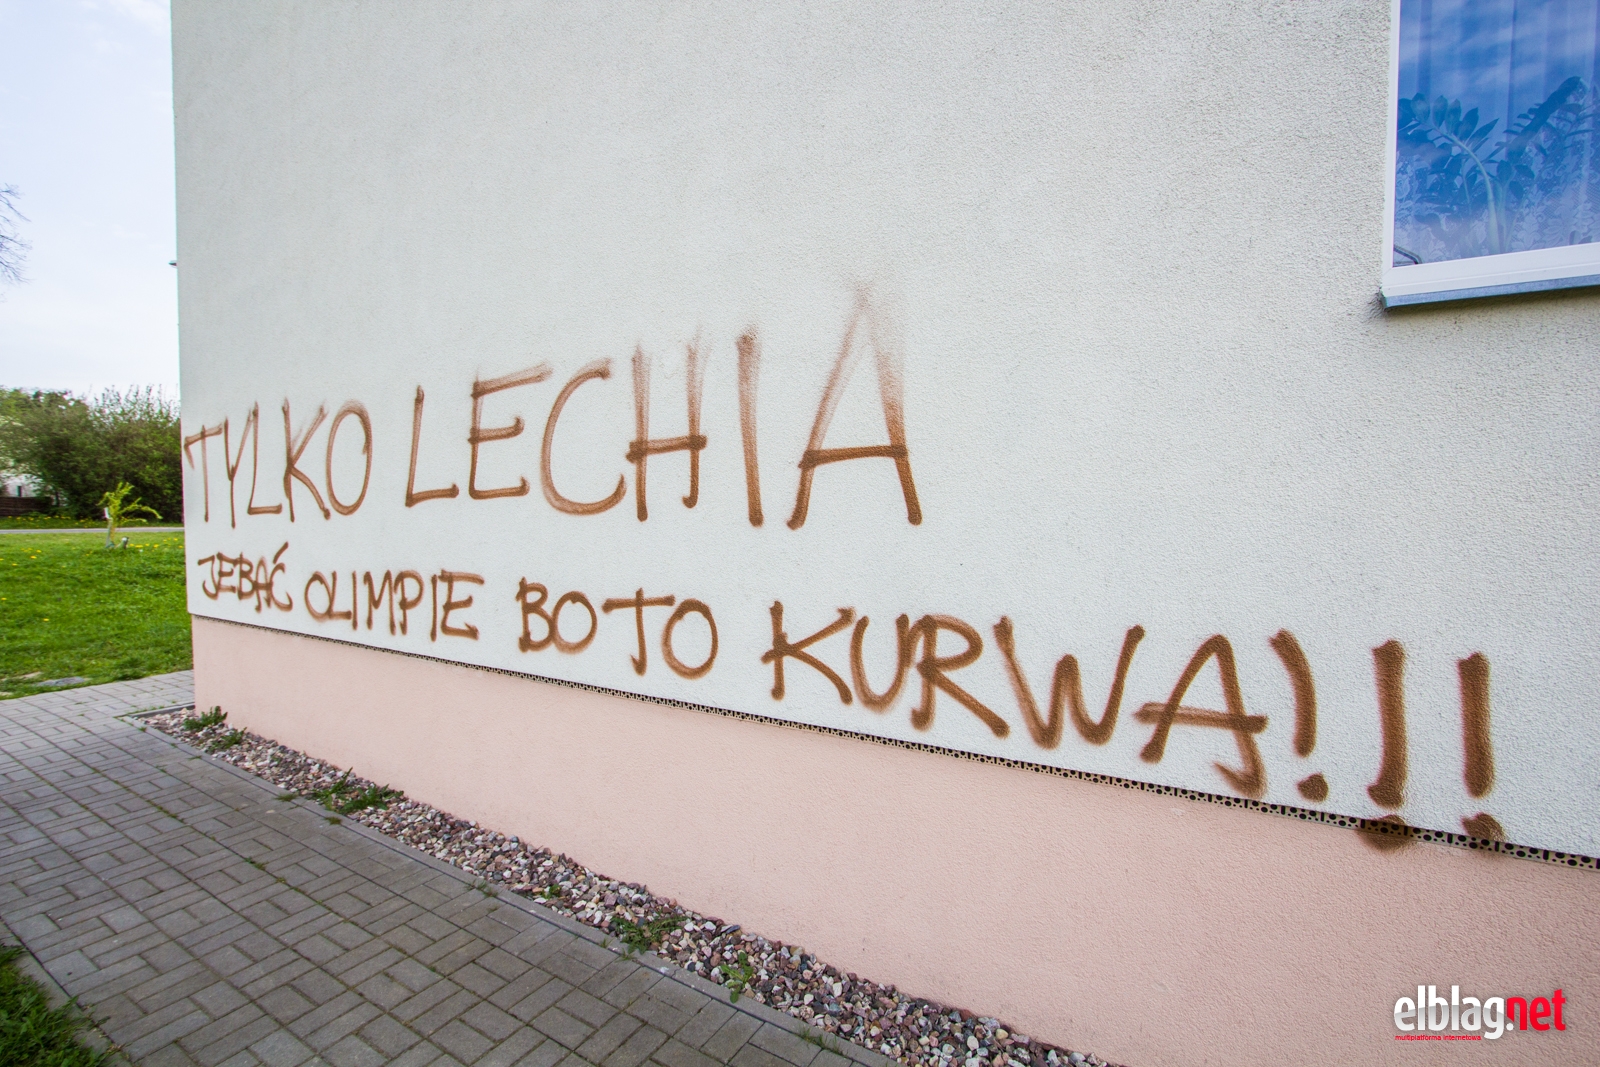 TYLKO LECHIA
JEBAĆ OLIMPIE BO TO KURWA!!!
elblag.net
multiplatforma internetowa